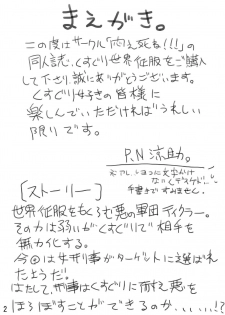 まえがき。
この度はサークル「悶え死ね!!!」の
同人誌、くすぐり世界征服をご購入
して下さり誠にありがとうございます。
くすぐり好きの皆様に
楽しんでいただければうれしい
限りです。
P.N 涼助。
手書きですみません。
[ストーリー]
世界征服をもくろむ悪の軍団ティクラー。
その力は弱いがくすぐりで相手を
無力化する。
今回は女刑事がターゲットに選ばれ
たようだ。
はたして、刑事はくすぐりに耐え悪を
ほろぼすことができるのか、、、!?
2